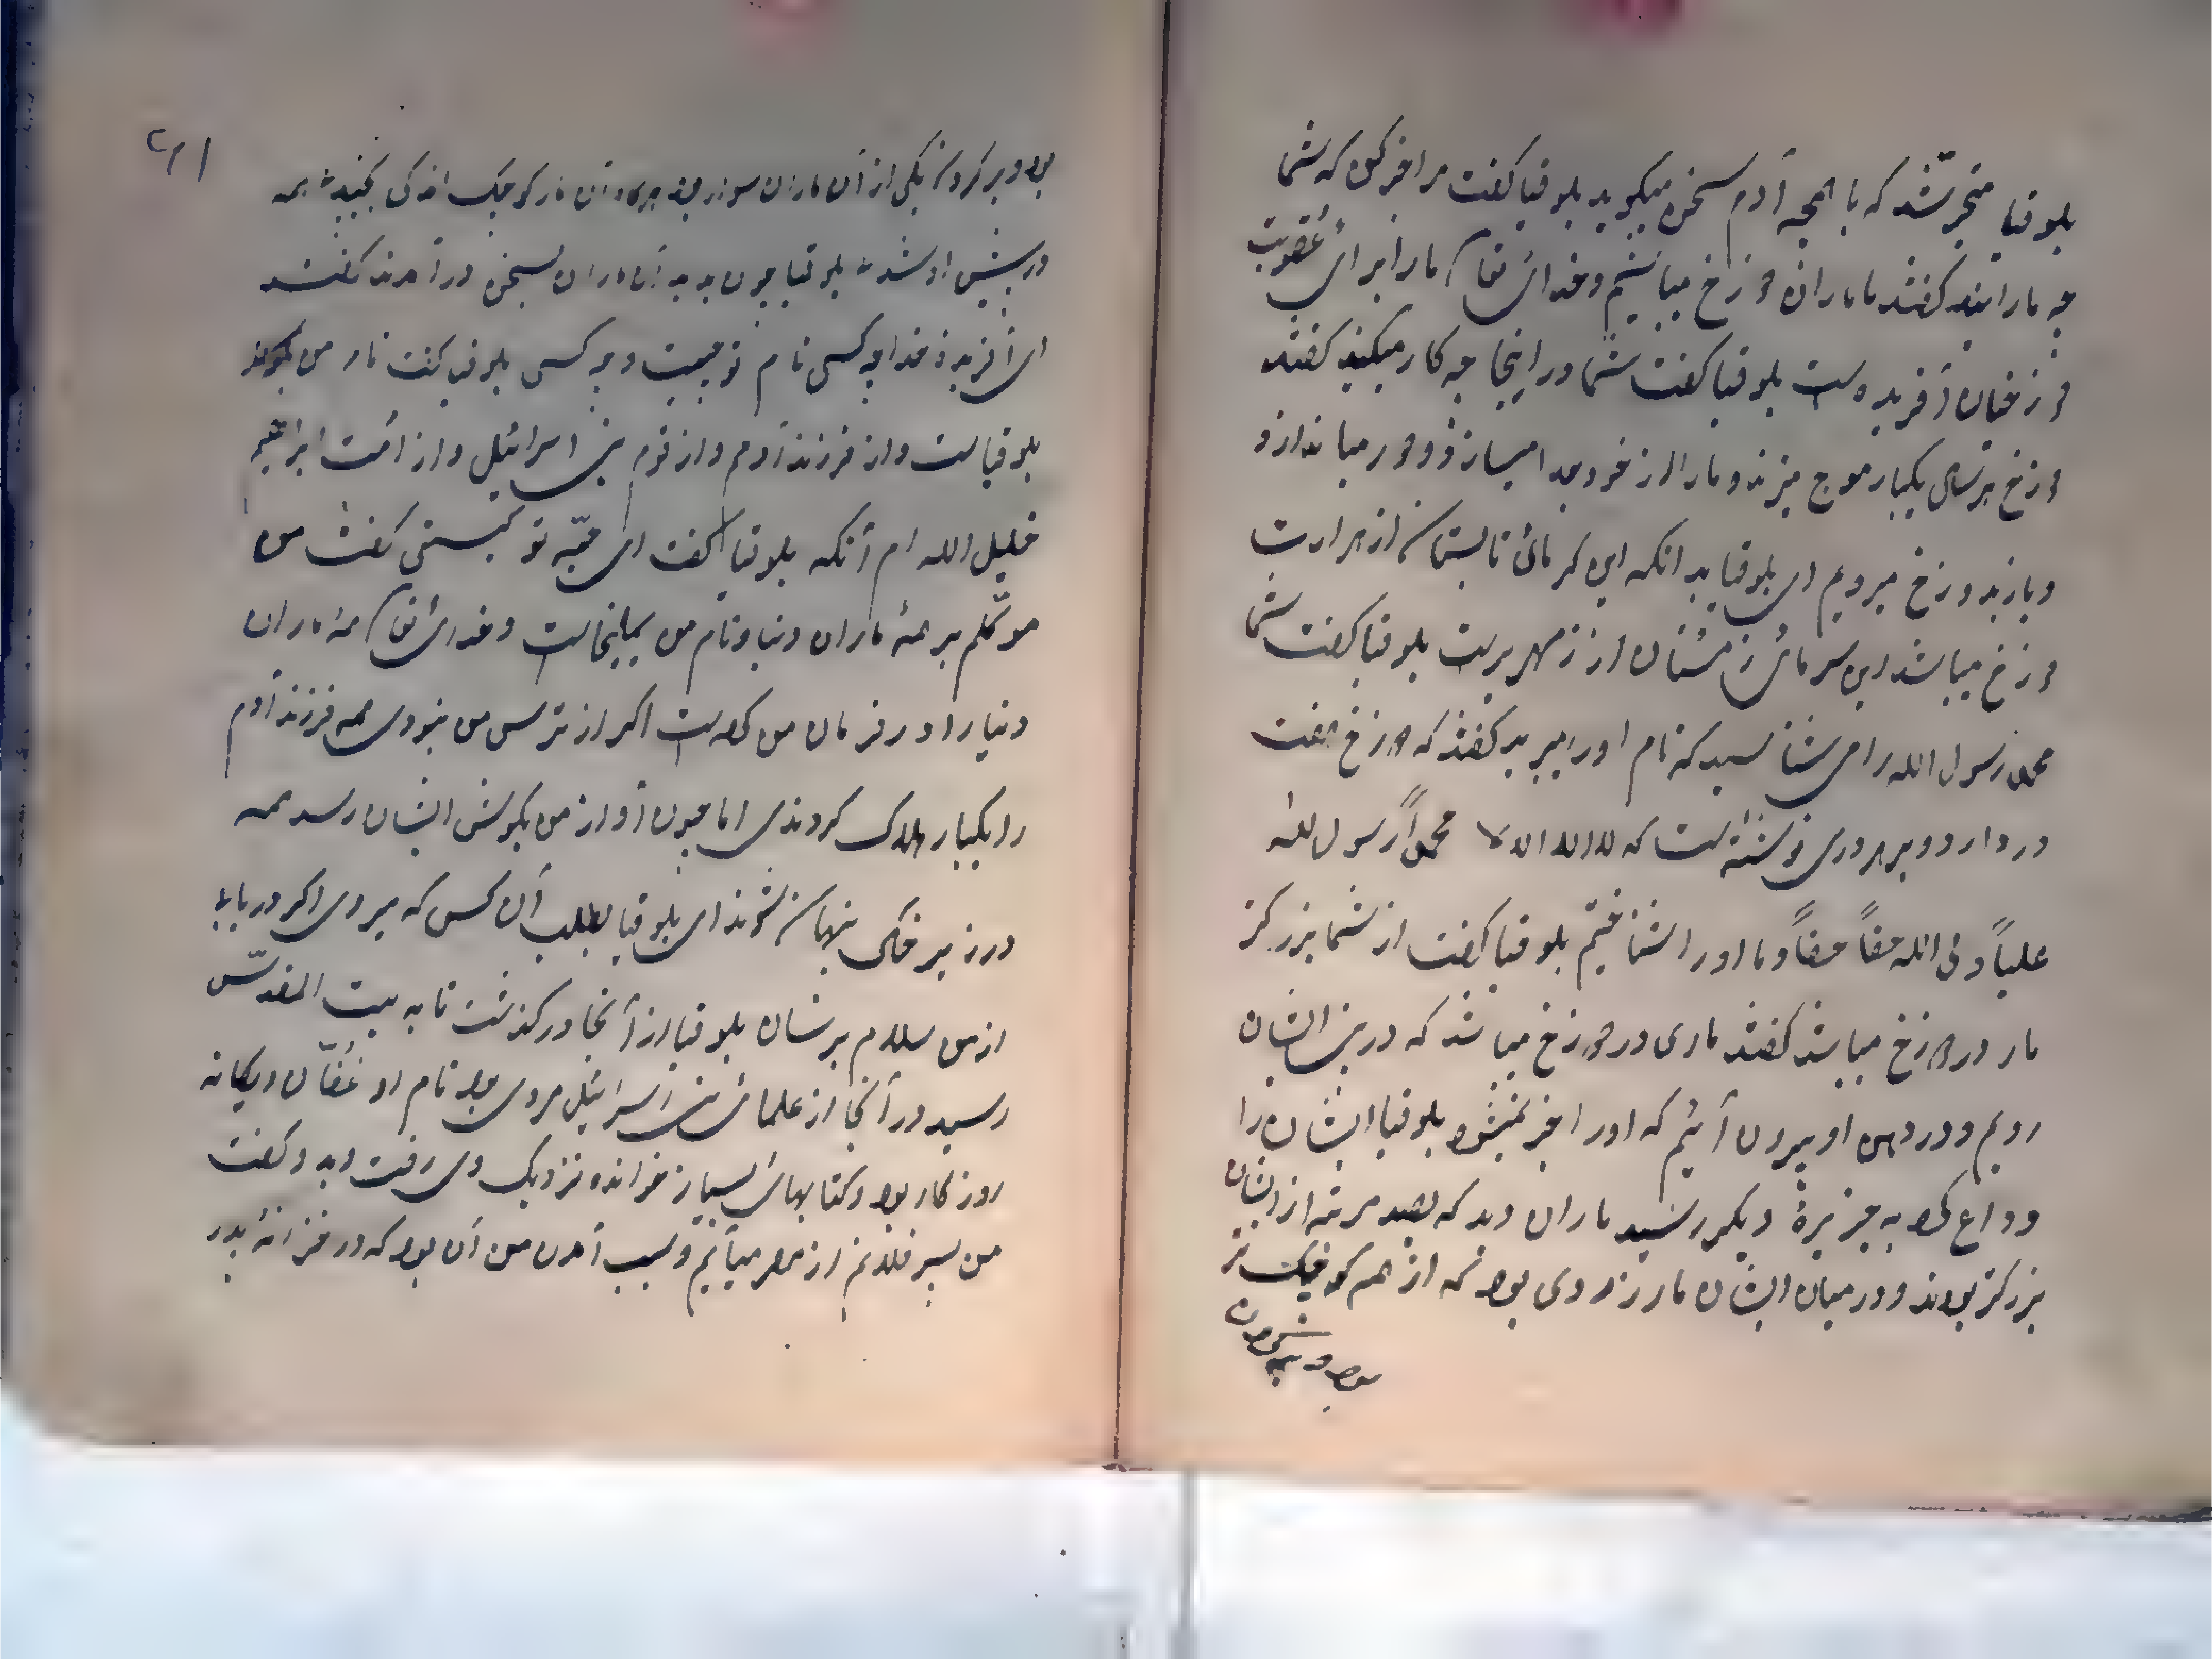 بلوقیا متحیر شد که با بچه آدم سخن میکوید بلوقیا کفت مرا خبر کن که شما
چه مارانید کفتند ما ماران دوزخ میباشیم و خدای تعا ما را برای عقوبت
دوزخیان آفریده است بلوقیا کفت شما در اینجا چه کار میکنید کفتند
دوزخ هر سالی یکبار موج میزند و ما را از خود جدا میسازد و دور میاندازد
و باز بدوزخ میرویم ای بلوقیا بدانکه این کرمائ تابستان از حرارت
دوزخ میباشد این سرمائ زمستان از زمهریر است بلوقیا کفت شما
محمد رسول الله را می شناسید که نام او را میبرید کفتند که دوزخ هفت
در دارد و بر هر دری نوشته است که لا اله الا الله محمداً رسول الله
علیاً ولی الله حقاً حقاً و ما او را شناختیم بلوقیا کفت از شما بزرکتر
مار در دوزخ میباشد کفتند ماری در دوزخ میباشد که در بینی ایشان
رویم و در دهن او بیرون آئیم که او را خبر نمیشود بلوقیا ایشان را
وداع کرد به جزیرهٔ دیکر رسید ماران دید که بصد مرتبه از ایشان
بزرکتر بودند و در میان ایشان مار زردی بود که از همه کوچک تر
بود و بر کردن
بود و بر کردن یکی از آن ماران سوار بود هرکاه آن مار کوچک اندکی بجنبید همه
در پیش او شدند بلوقیا چون بدید آن ماران بسخن درآمدند کفتند
ای آفریدهٔ خدا چه کسی نام تو چیست و چه کسی بلوقیا کفت نام من
بلوقیا است و از فرزند آدم و از قوم بنی اسرائیل و از امت ابراهیم
خلیل الله ام آنکه بلوقیا کفت ای حیّه تو کیستی کفت من
موکلم بر همهٔ ماران دنیا و نام من یملیخا است و خدائ تعا همهٔ ماران
دنیا را در فرمان من کرده است اکر از ترس من نبودی همه فرزند آدم
را یکبار هلاک کردندی اما چون آواز من بکوش ایشان رسد همه
در زیر خاک پنهان شوند ای بلوقیا بطلب آن کس که میروی اکر دریابی
از من سلام برسان بلوقیا از آنجا درکذشت تا به بیت المقدّس
رسید در آنجا از علمائ بنی اسرائیل مردی بود نام او عُفّان و یکانه
روزکار بود و کتابهائ بسیار خوانده نزدیک وی رفت دید و کفت
من پسر فلانم از مصر میآیم و سبب آمدن من آن بود که در خزانهٔ پدر